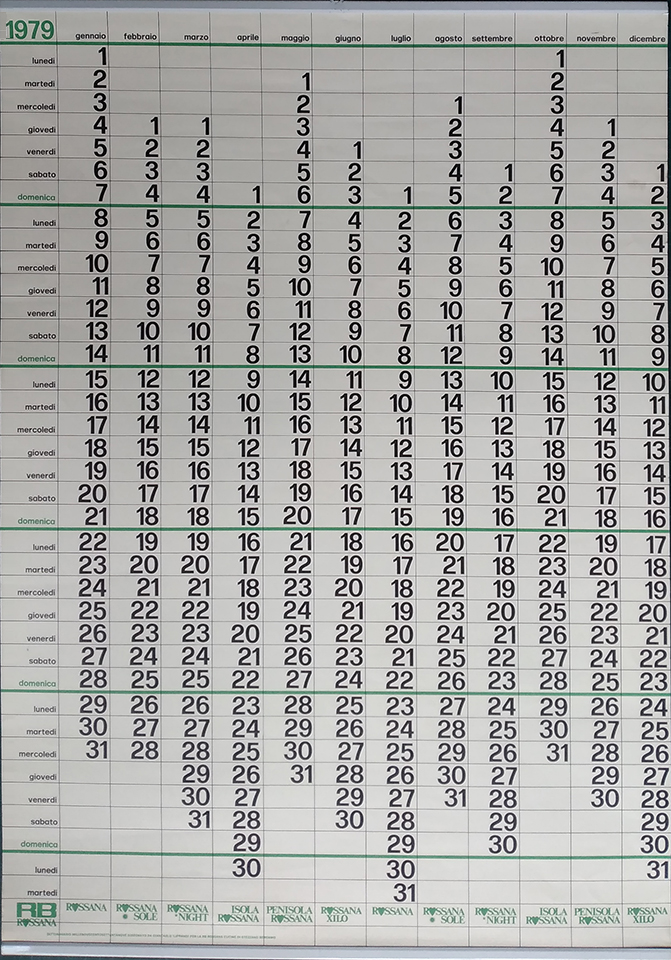 1979 gennaio febbraio marzo aprile maggio giugno luglio agosto settembre ottobre novembre dicembre
lunedì 1 1
martedì 2 1 2
mercoledì 3 2 1 3
giovedì 4 1 1 3 2 4 1
venerdì 5 2 2 4 1 3 5 2
sabato 6 3 3 5 2 4 1 6 3 1
domenica 7 4 4 1 6 3 1 5 2 7 4 2
lunedì 8 5 5 2 7 4 2 6 3 8 5 3
martedì 9 6 6 3 8 5 3 7 4 9 6 4
mercoledì 10 7 7 4 9 6 4 8 5 10 7 5
giovedì 11 8 8 5 10 7 5 9 6 11 8 6
venerdì 12 9 9 6 11 8 6 10 7 12 9 7
sabato 13 10 10 7 12 9 7 11 8 13 10 8
domenica 14 11 11 8 13 10 8 12 9 14 11 9
lunedì 15 12 12 9 14 11 9 13 10 15 12 10
martedì 16 13 13 10 15 12 10 14 11 16 13 11
mercoledì 17 14 14 11 16 13 11 15 12 17 14 12
giovedì 18 15 15 12 17 14 12 16 13 18 15 13
venerdì 19 16 16 13 18 15 13 17 14 19 16 14
sabato 20 17 17 14 19 16 14 18 15 20 17 15
domenica 21 18 18 15 20 17 15 19 16 21 18 16
lunedì 22 19 19 16 21 18 16 20 17 22 19 17
martedì 23 20 20 17 22 19 17 21 18 23 20 18
mercoledì 24 21 21 18 23 20 18 22 19 24 21 19
giovedì 25 22 22 19 24 21 19 23 20 25 22 20
venerdì 26 23 23 20 25 22 20 24 21 26 23 21
sabato 27 24 24 21 26 23 21 25 22 27 24 22
domenica 28 25 25 22 27 24 22 26 23 28 25 23
lunedì 29 26 26 23 28 25 23 27 24 29 26 24
martedì 30 27 27 24 29 26 24 28 25 30 27 25
mercoledì 31 28 28 25 30 27 25 29 26 31 28 26
giovedì 29 26 31 28 26 30 27 29 27
venerdì 30 27 29 27 31 28 30 28
sabato 31 28 30 28 29 29
domenica 29 29 30 30
lunedì 30 30 31
martedì 31
RB ROSSANA ROSSANA ROSSANA ISOLA PENISOLA ROSSANA ROSSANA ROSSANA ROSSANA ISOLA PENISOLA ROSSANA
ROSSANA SOLE NIGHT ROSSANA ROSSANA XILO SOLE NIGHT ROSSANA ROSSANA XILO